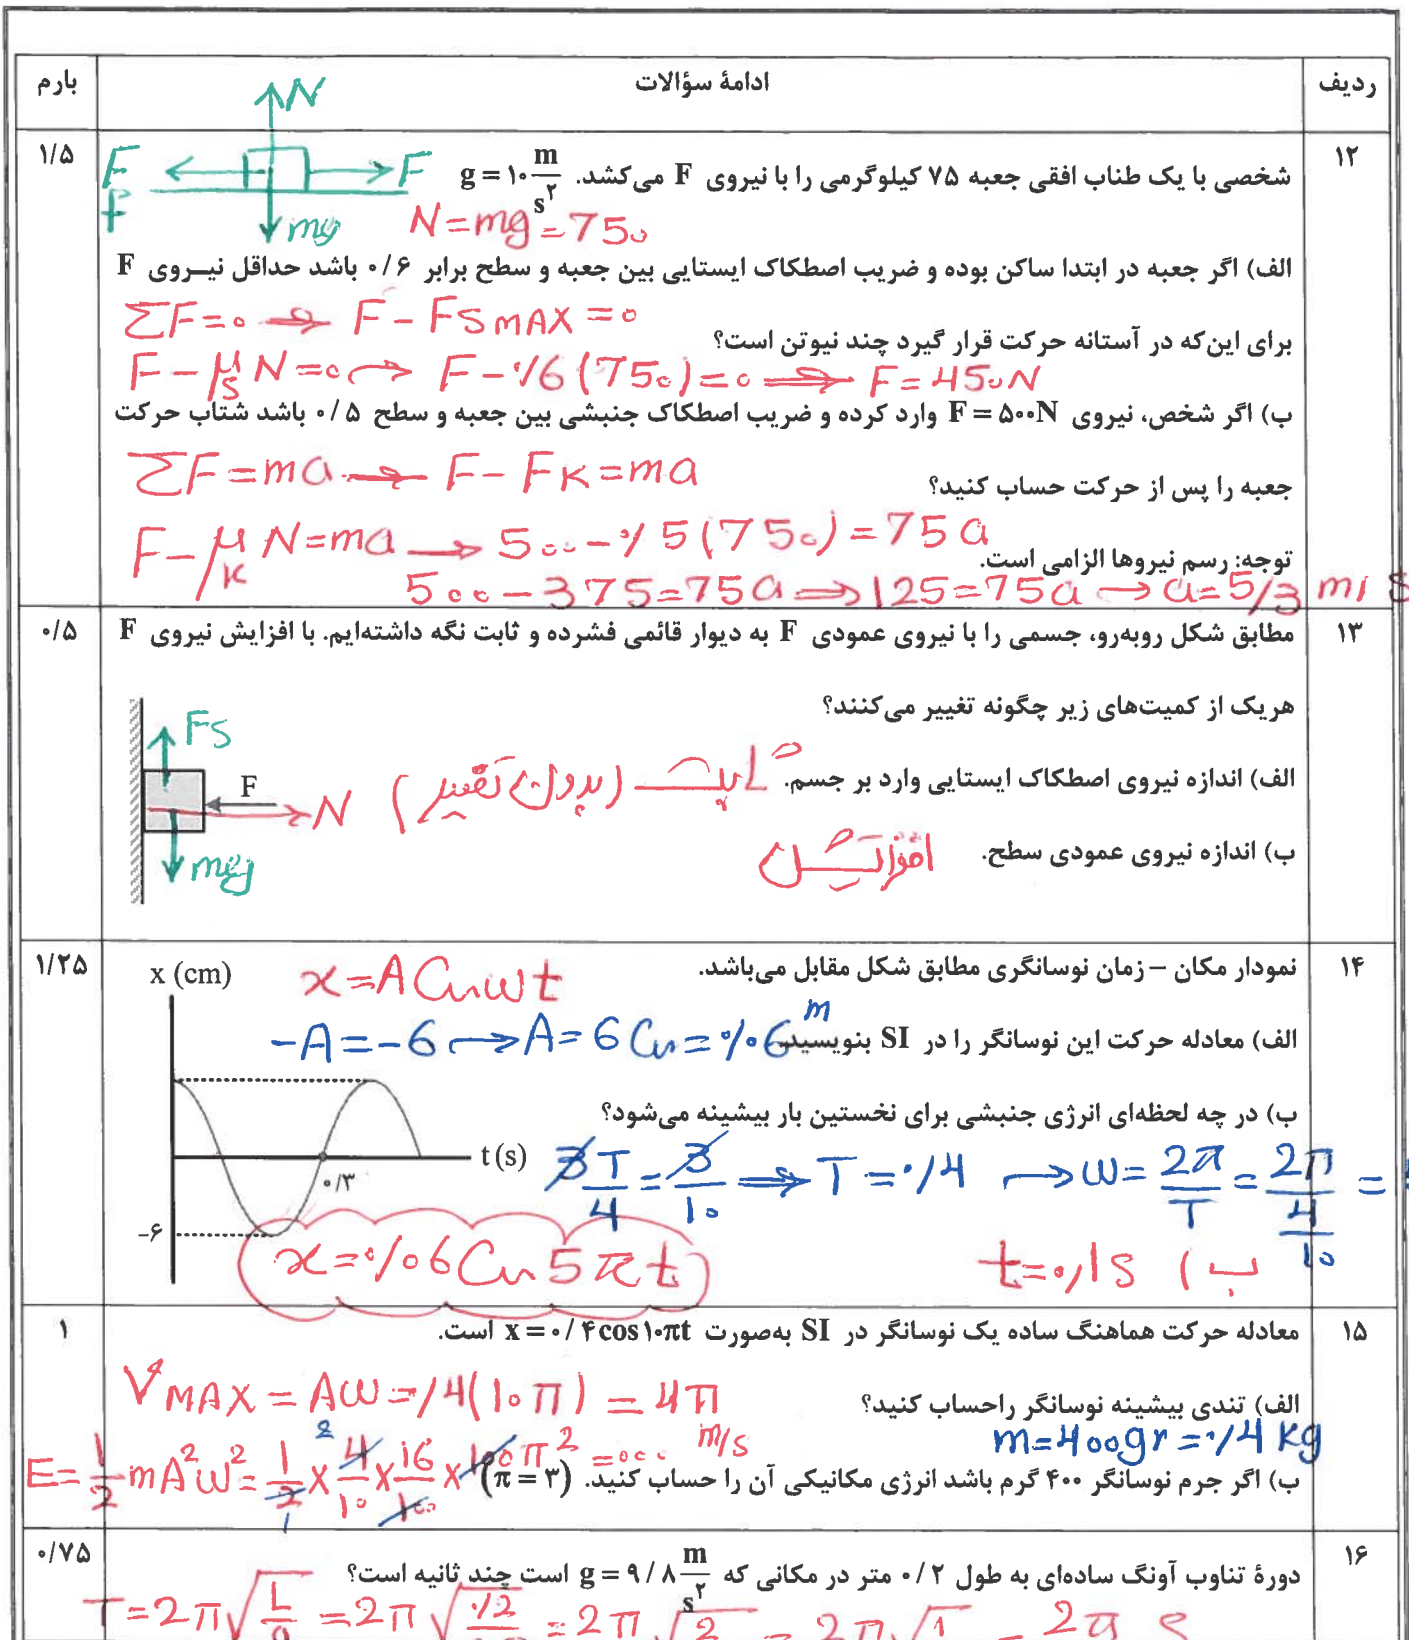 ردیف
ادامهٔ سؤالات
بارم
۱۲
۱/۵
N
F F
F
mg
شخصی با یک طناب افقی جعبه ۷۵ کیلوگرمی را با نیروی F می‌کشد. g = ۱۰ m/s۲
N=mg=750
الف) اگر جعبه در ابتدا ساکن بوده و ضریب اصطکاک ایستایی بین جعبه و سطح برابر ۰/۶ باشد حداقل نیـــروی F
ΣF=0 → F-FSMAX=0
برای این‌که در آستانه حرکت قرار گیرد چند نیوتن است؟
F-μsN=0 → F-0/6(750)=0 ⇒ F=450N
ب) اگر شخص، نیروی F = ۵۰۰N وارد کرده و ضریب اصطکاک جنبشی بین جعبه و سطح ۰/۵ باشد شتاب حرکت
ΣF=ma → F-FK=ma
جعبه را پس از حرکت حساب کنید؟
F-μK N=ma → 500-0/5(750)=75a
توجه: رسم نیروها الزامی است.
500-375=75a ⇒ 125=75a → a=5/3 m/s
۱۳
۰/۵
مطابق شکل روبه‌رو، جسمی را با نیروی عمودی F به دیوار قائمی فشرده و ثابت نگه داشته‌ایم. با افزایش نیروی F
هریک از کمیت‌های زیر چگونه تغییر می‌کنند؟
FS
F
N
mg
الف) اندازه نیروی اصطکاک ایستایی وارد بر جسم. ثابت (بدون تغییر)
ب) اندازه نیروی عمودی سطح. افزایش
۱۴
۱/۲۵
نمودار مکان – زمان نوسانگری مطابق شکل مقابل می‌باشد.
x=A Cosωt
x (cm)
الف) معادله حرکت این نوسانگر را در SI بنویسید.
-A=-6 → A=6Cm=0/06 m
ب) در چه لحظه‌ای انرژی جنبشی برای نخستین بار بیشینه می‌شود؟
t (s)
۰/۳
-۶
3T/4=3/10 ⇒ T=0/4 → ω=2π/T=2π/(4/10)=
x=0/06Cos5πt
ب) t=0/1S
۱۵
۱
معادله حرکت هماهنگ ساده یک نوسانگر در SI به‌صورت x = ۰/۴cos۱۰πt است.
VMAX=Aω=/4(10π)=4π m/s
الف) تندی بیشینه نوسانگر راحساب کنید؟
m=400gr=0/4 Kg
ب) اگر جرم نوسانگر ۴۰۰ گرم باشد انرژی مکانیکی آن را حساب کنید. (π = ۳)
E=1/2 mA²ω²=1/2×4/10×16/100×100π²=
۱۶
۰/۷۵
دورهٔ تناوب آونگ ساده‌ای به طول ۰/۲ متر در مکانی که g = ۹/۸ m/s۲ است چند ثانیه است؟
T=2π√L/g=2π√